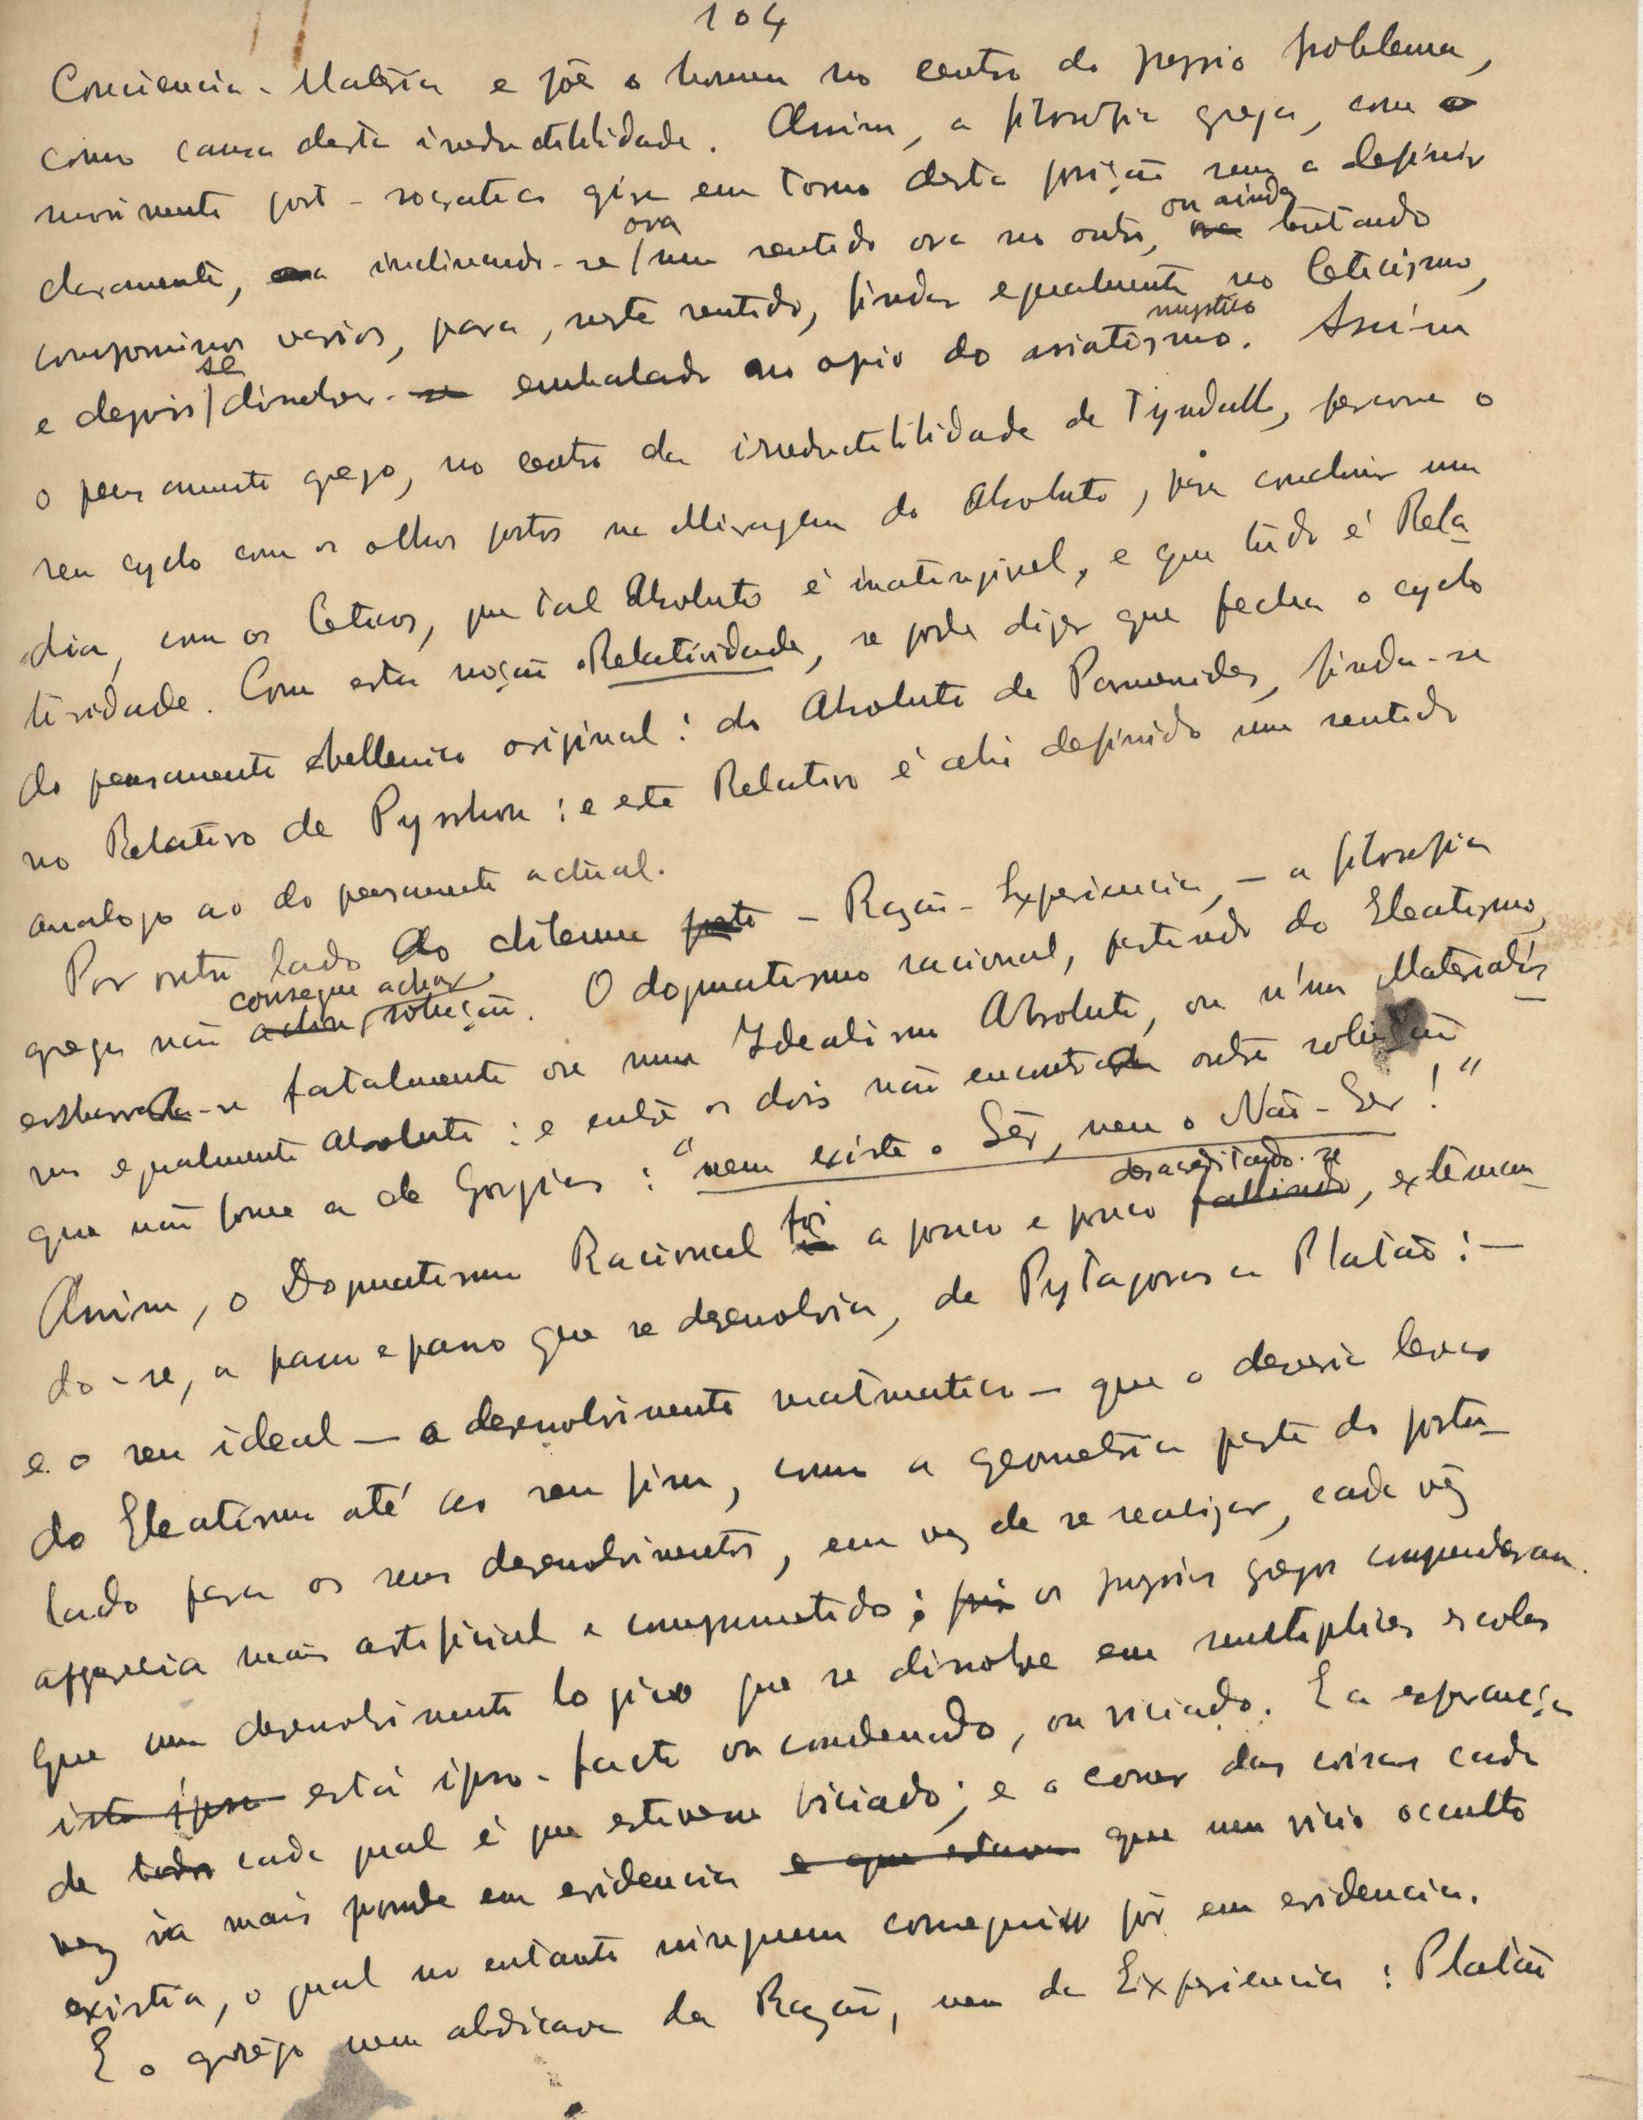 104
Conciencia - Materia e põe o homem no centro do proprio problema,
como causa desta irreductibilidade. Assim, a filosofia grega, com o
movimento post-socratico gira em torno desta posição sem a definir
claramente, ora inclinando-se / ora num sentido ora no outro, ou ainda tentando
compromissos varios, para, neste sentido, findar egualmente no Ceticismo,
e depois / se dissolver - se embalado no opio do asiatismo mystico. Assim
o pensamento grego, no centro da irreductibilidade de Tyndall, percorre o
seu cyclo com os olhos postos na Miragem do Absoluto, para concluir um
dia, com os Ceticos, que tal Absoluto é inatingivel, e que tudo é Rela-
tividade. Com esta noção Relatividade, se pode dizer que fecha o cyclo
do pensamento hellenico original: do Absoluto de Parmenides, finda-se
no Relativo de Pyrrhon: e este Relativo é ahi definido num sentido
analogo ao do pensamento actual.
Por outro lado do dilema posto - Razão - Experiencia, - a filosofia
grega não achou consegue achar solução. O dogmatismo racional, partindo do Eleatismo,
esbarra-se fatalmente ora num Idealismo Absoluto, ou n'um Materialis-
mo egualmente absoluto: e entre os dois não encontra outra solução
que não fosse a de Gorgias: "nem existe o Sêr, nem o Não-Ser!"
Assim, o Dogmatismo Racional ia foi a pouco e pouco fallindo desacreditando-se, exteman-
do-se, a passo e passo que se desenvolvia, de Pytagoras a Platão: -
e o seu ideal - o desenvolvimento matmatico - que o deveria levar
do Eleatismo até ao seu fim, como a geometria parte do postu-
lado para os seus desenvolvimentos, em vez de se realizar, cada vêz
apparecia mais artificial e comprometido: pois os proprios gregos comprenderam
que um desenvolvimento logico que se dissolve em multiplices escolas
isto ipso está ipso-facto ou condenado, ou viciado. E a esperança
de todos cada qual é que estivesse viciado; e o correr das coisas cada
vez ia mais pondo em evidencia e que estava que um vicio occulto
existia, o qual no entanto ninguem conseguiu pôr em evidencia.
E o grego nem abdicava da Razão, nem da Experiencia: Platão